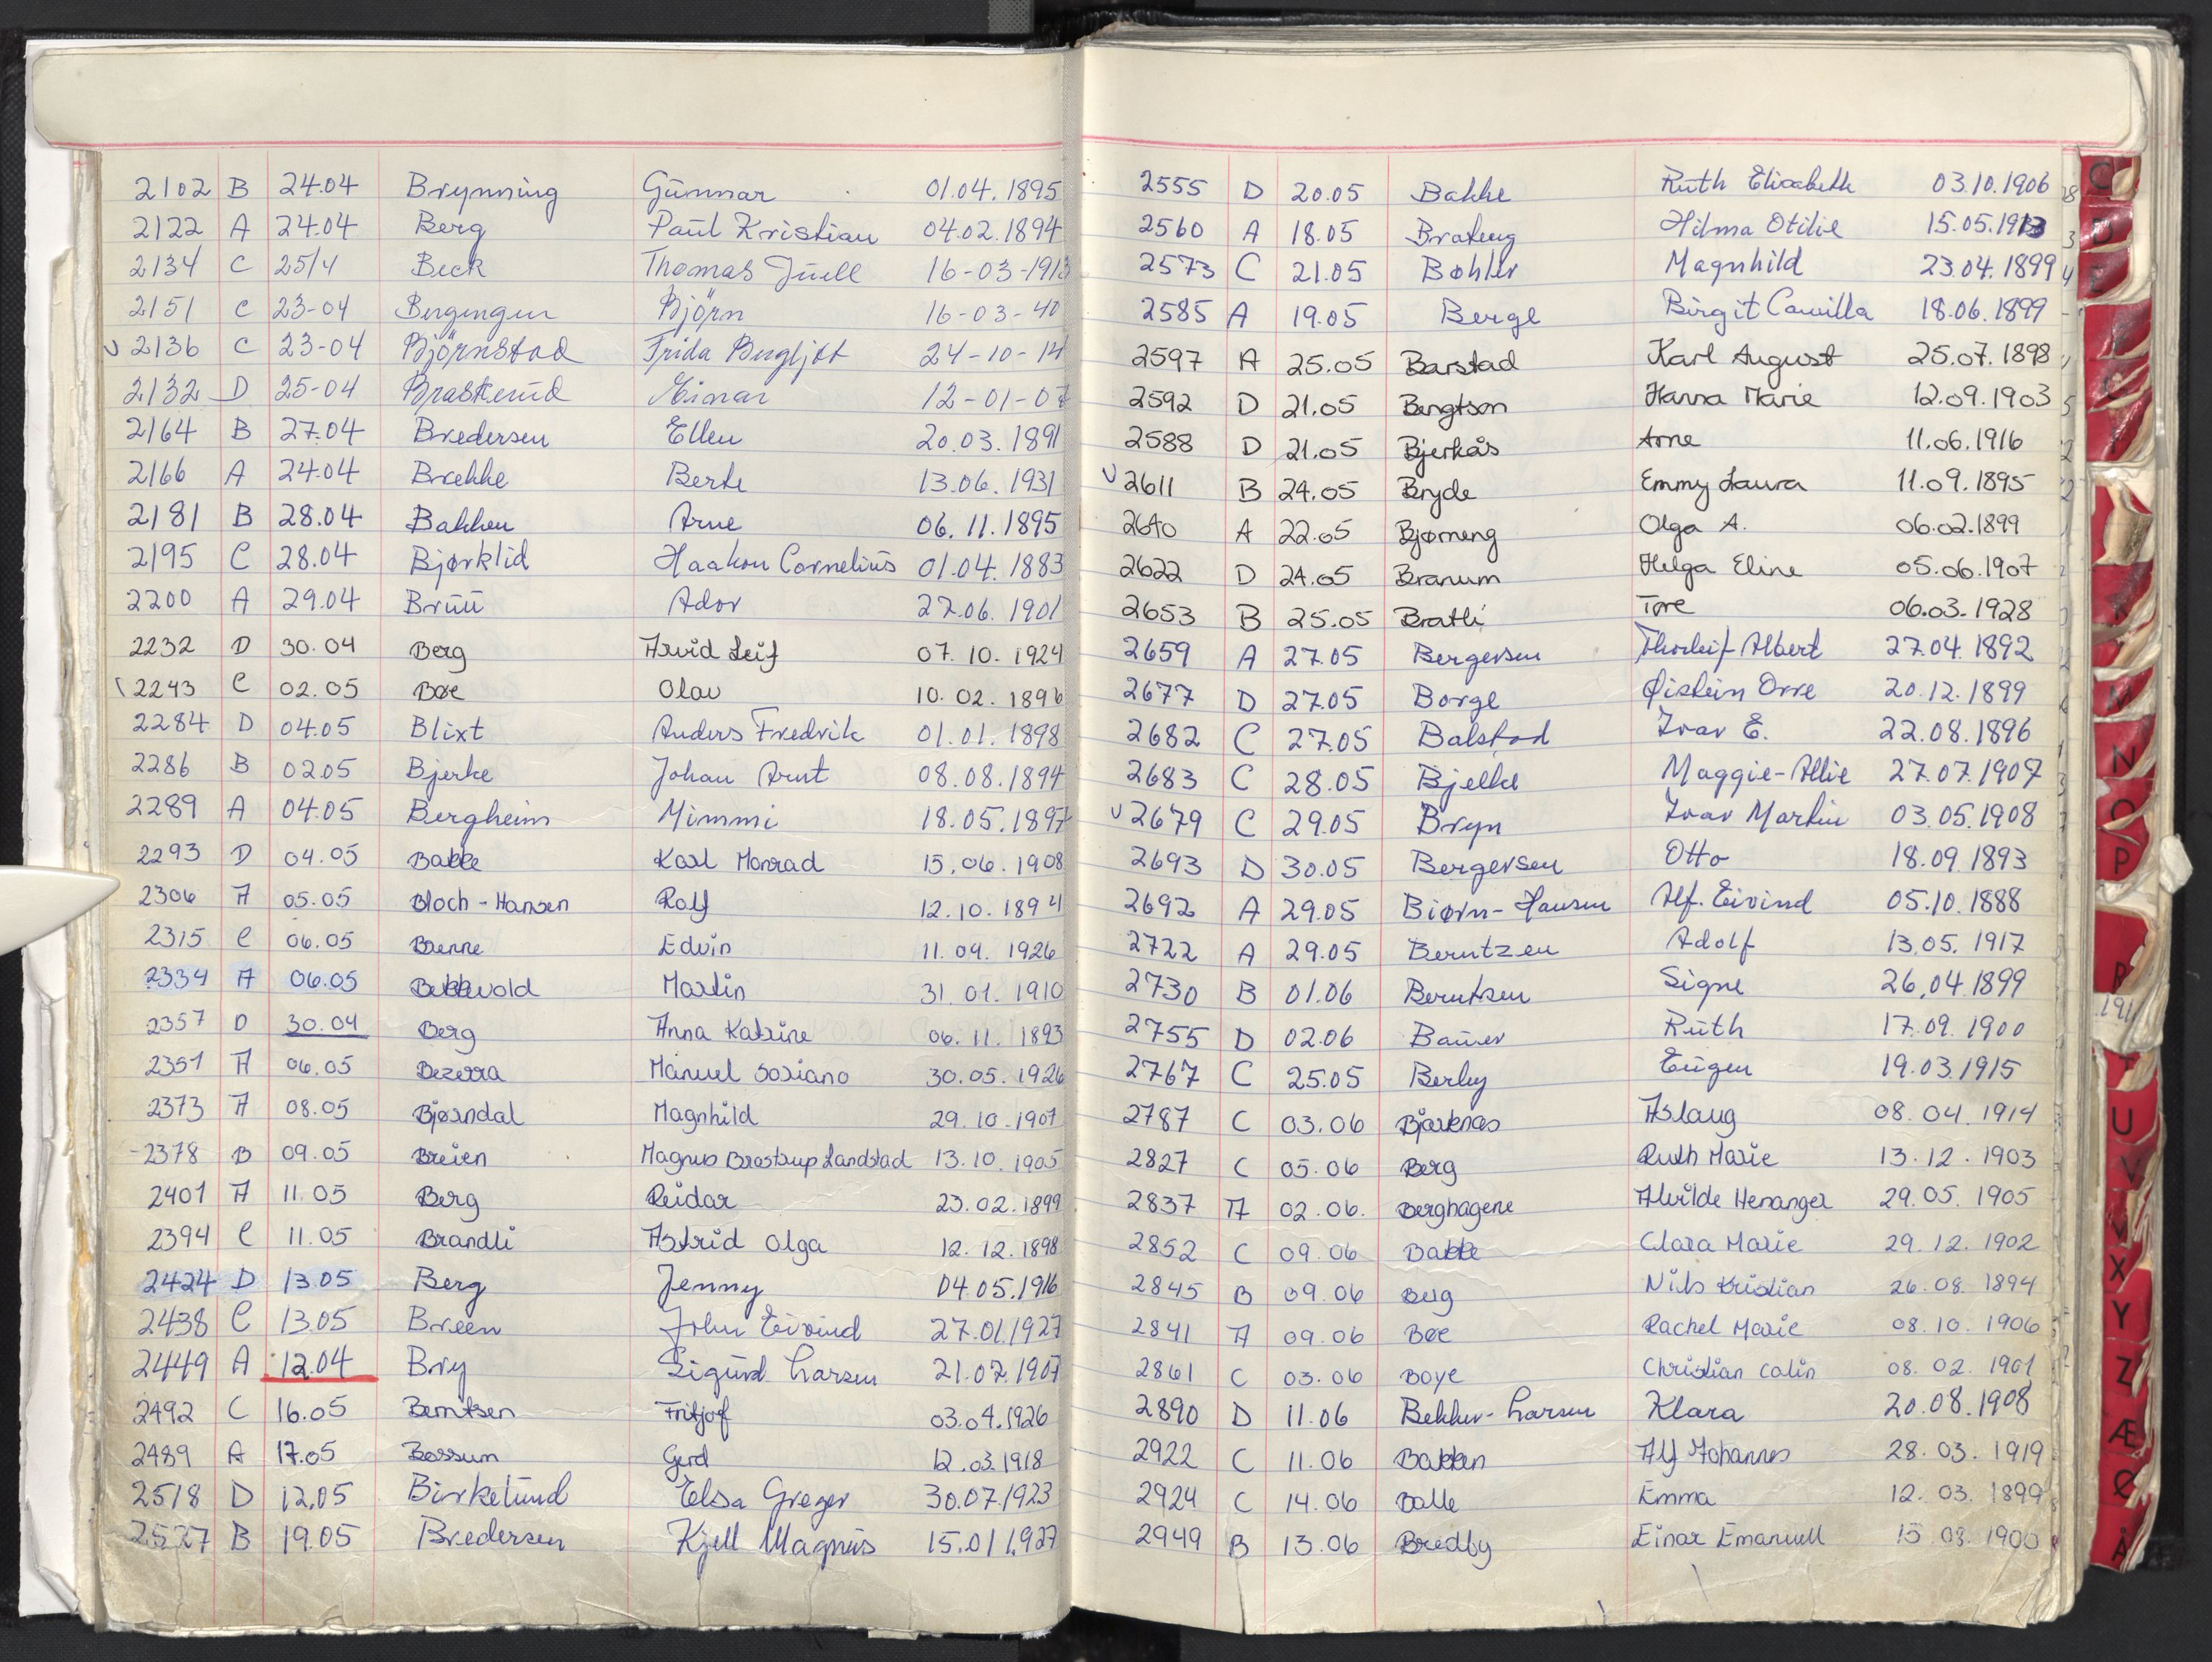 2102 B 24.04 Brynning Gunnar 01.04.1895
2122 A 24.04 Berg Paul Kristian 04.02.1894
2134 C 25/4 Beck Thomas Juell 16-03-1913
2151 C 23-04 Björn 16-03-40
2136 C 23-04 Björnstad Frida Bergljot 24-10-14
2132 D 25-04 Braskerud Einar 12-01-07
2164 B 27.04 Bredersen Ellen 20.03.1891
2166 A 24.04 Brekke Berte 13.06.1931
2181 B 28.04 Bakken Arne 06.11.1895
2195 C 28.04 Bjørklid Haakon Cornelius 01.04.1883
2200 A 29.04 Bruu Ador 27.06.1901
2232 D 30.04 Berg Arvid Leif 07.10.1924
2243 C 02.05 Bøe Olav 10.02.1896
2284 D 04.05 Blixt Anders Fredrik 01.01.1898
2286 B 02.05 Bjerke Johan Arnt 08.08.1894
2289 A 04.05 Bergheim Mimmi 18.05.1897
2293 D 04.05 Bakke Karl Monrad 15.06.1908
2306 A 05.05 Bloch-Hansen Rolf 12.10.1894
2315 C 06.05 Brenne Edvin 11.09.1926
2334 A 06.05 Bekkevold Martin 31.01.1910
2357 D 30.04 Berg Anna Katrine 06.11.1893
2351 A 06.05 Bezerra Manuel Soriano 30.05.1926
2373 A 08.05 Bjørndal Magnhild 29.10.1907
2378 B 09.05 Breien Magnus Brostrup Landstad 13.10.1905
2401 A 11.05 Berg Reidar 23.02.1899
2394 C 11.05 Brandli Astrid Olga 12.12.1898
2424 D 13.05 Berg Jenny 04.05.1916
2438 C 13.05 Breen John Eivind 27.01.1927
2449 A 12.04 Bry Sigurd Larsen 21.07.1907
2492 C 16.05 Berntsen Fritjof 03.04.1926
2489 A 17.05 Bossum Gerd 12.03.1918
2518 D 12.05 Birkelund Elsa Greger 30.07.1923
2527 B 19.05 Bredersen Kjell Magnus 15.01.1927
2555 D 20.05 Bakke Ruth Elisabeth 03.10.1906
2560 A 18.05 Brateng Hilma Otilie 15.05.1913
2573 C 21.05 Bøhler Magnhild 23.04.1899
2585 A 19.05 Berge Birgit Camilla 18.06.1899
2597 A 25.05 Barstad Karl August 25.07.1898
2592 D 21.05 Bengtson Hanna Marie 12.09.1903
2588 D 21.05 Bjerkås Arne 11.06.1916
2611 B 24.05 Bryde Emmy Laura 11.09.1895
2640 A 22.05 Bjørneng Olga A. 06.02.1899
2622 D 24.05 Branum Helga Eline 05.06.1907
2653 B 25.05 Bratli Tore 06.03.1928
2659 A 27.05 Bergersen Thorleif Albert 27.04.1892
2677 D 27.05 Borge Øistein Orre 20.12.1899
2682 C 27.05 Balstad Ivar E. 22.08.1896
2683 C 28.05 Bjelke Maggie-Allie 27.07.1907
2679 C 29.05 Bryn Ivar Martin 03.05.1908
2693 D 30.05 Bergersen Otto 18.09.1893
2692 A 29.05 Biørn-Hansen Alf. Eivind 05.10.1888
2722 A 29.05 Berntzen Adolf 13.05.1917
2730 B 01.06 Berntsen Signe 26.04.1899
2755 D 02.06 Bauer Ruth 17.09.1900
2767 C 25.05 Berley Eugen 19.03.1915
2787 C 03.06 Bjørknes Aslaug 08.04.1914
2827 C 05.06 Berg Ruth Marie 13.12.1903
2837 A 02.06. Berghagene Alvilde Henanger 29.05.1905
2852 C 09.06 Bakke Clara Marie 29.12.1902
2845 B 09.06 Berg Nils Kristian 26.08.1894
2841 A 09.06 Bøe Rachel Marie 08.10.1906
2861 C 03.06 Boye Christian Colin 08.02.1901
2890 D 11.06 Bekker-Larsen Klara 20.08.1908
2922 C 11.06 Bakken Alf Johannes 28.03.1919
2924 C 14.06 Balle Emma 12.03.1899
2949 B 13.06 Bredby Einar Emanuell 15.03.1900
C
D
E
M
N
O
P
R
U
V
X
Y
Z
Æ
Ø
Å